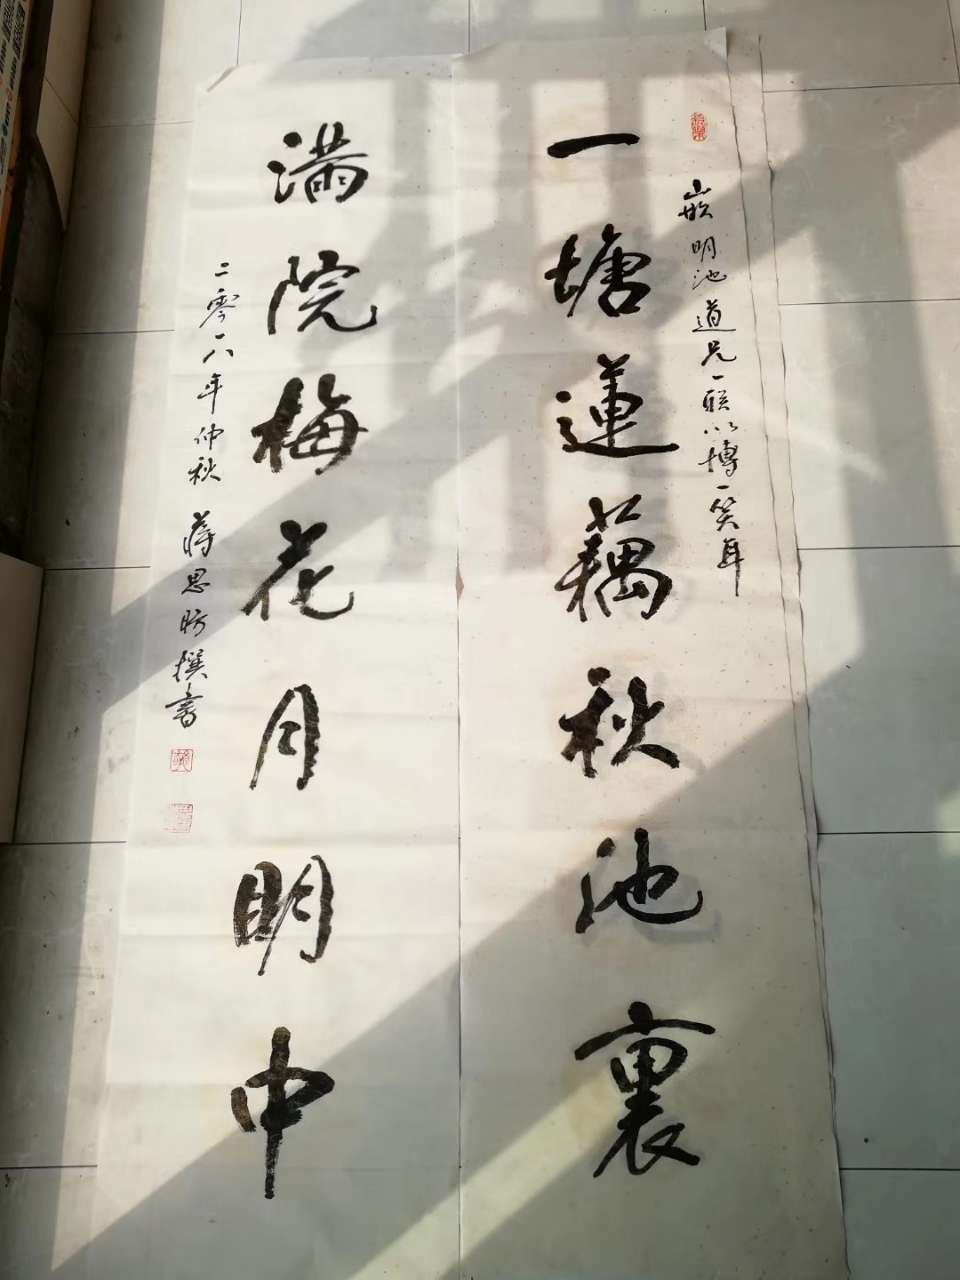 嵌明池道兄一联以博一笑耳
一塘莲藕秋池裏
满院梅花月明中
二零一八年仲秋 蒋思昉撰书